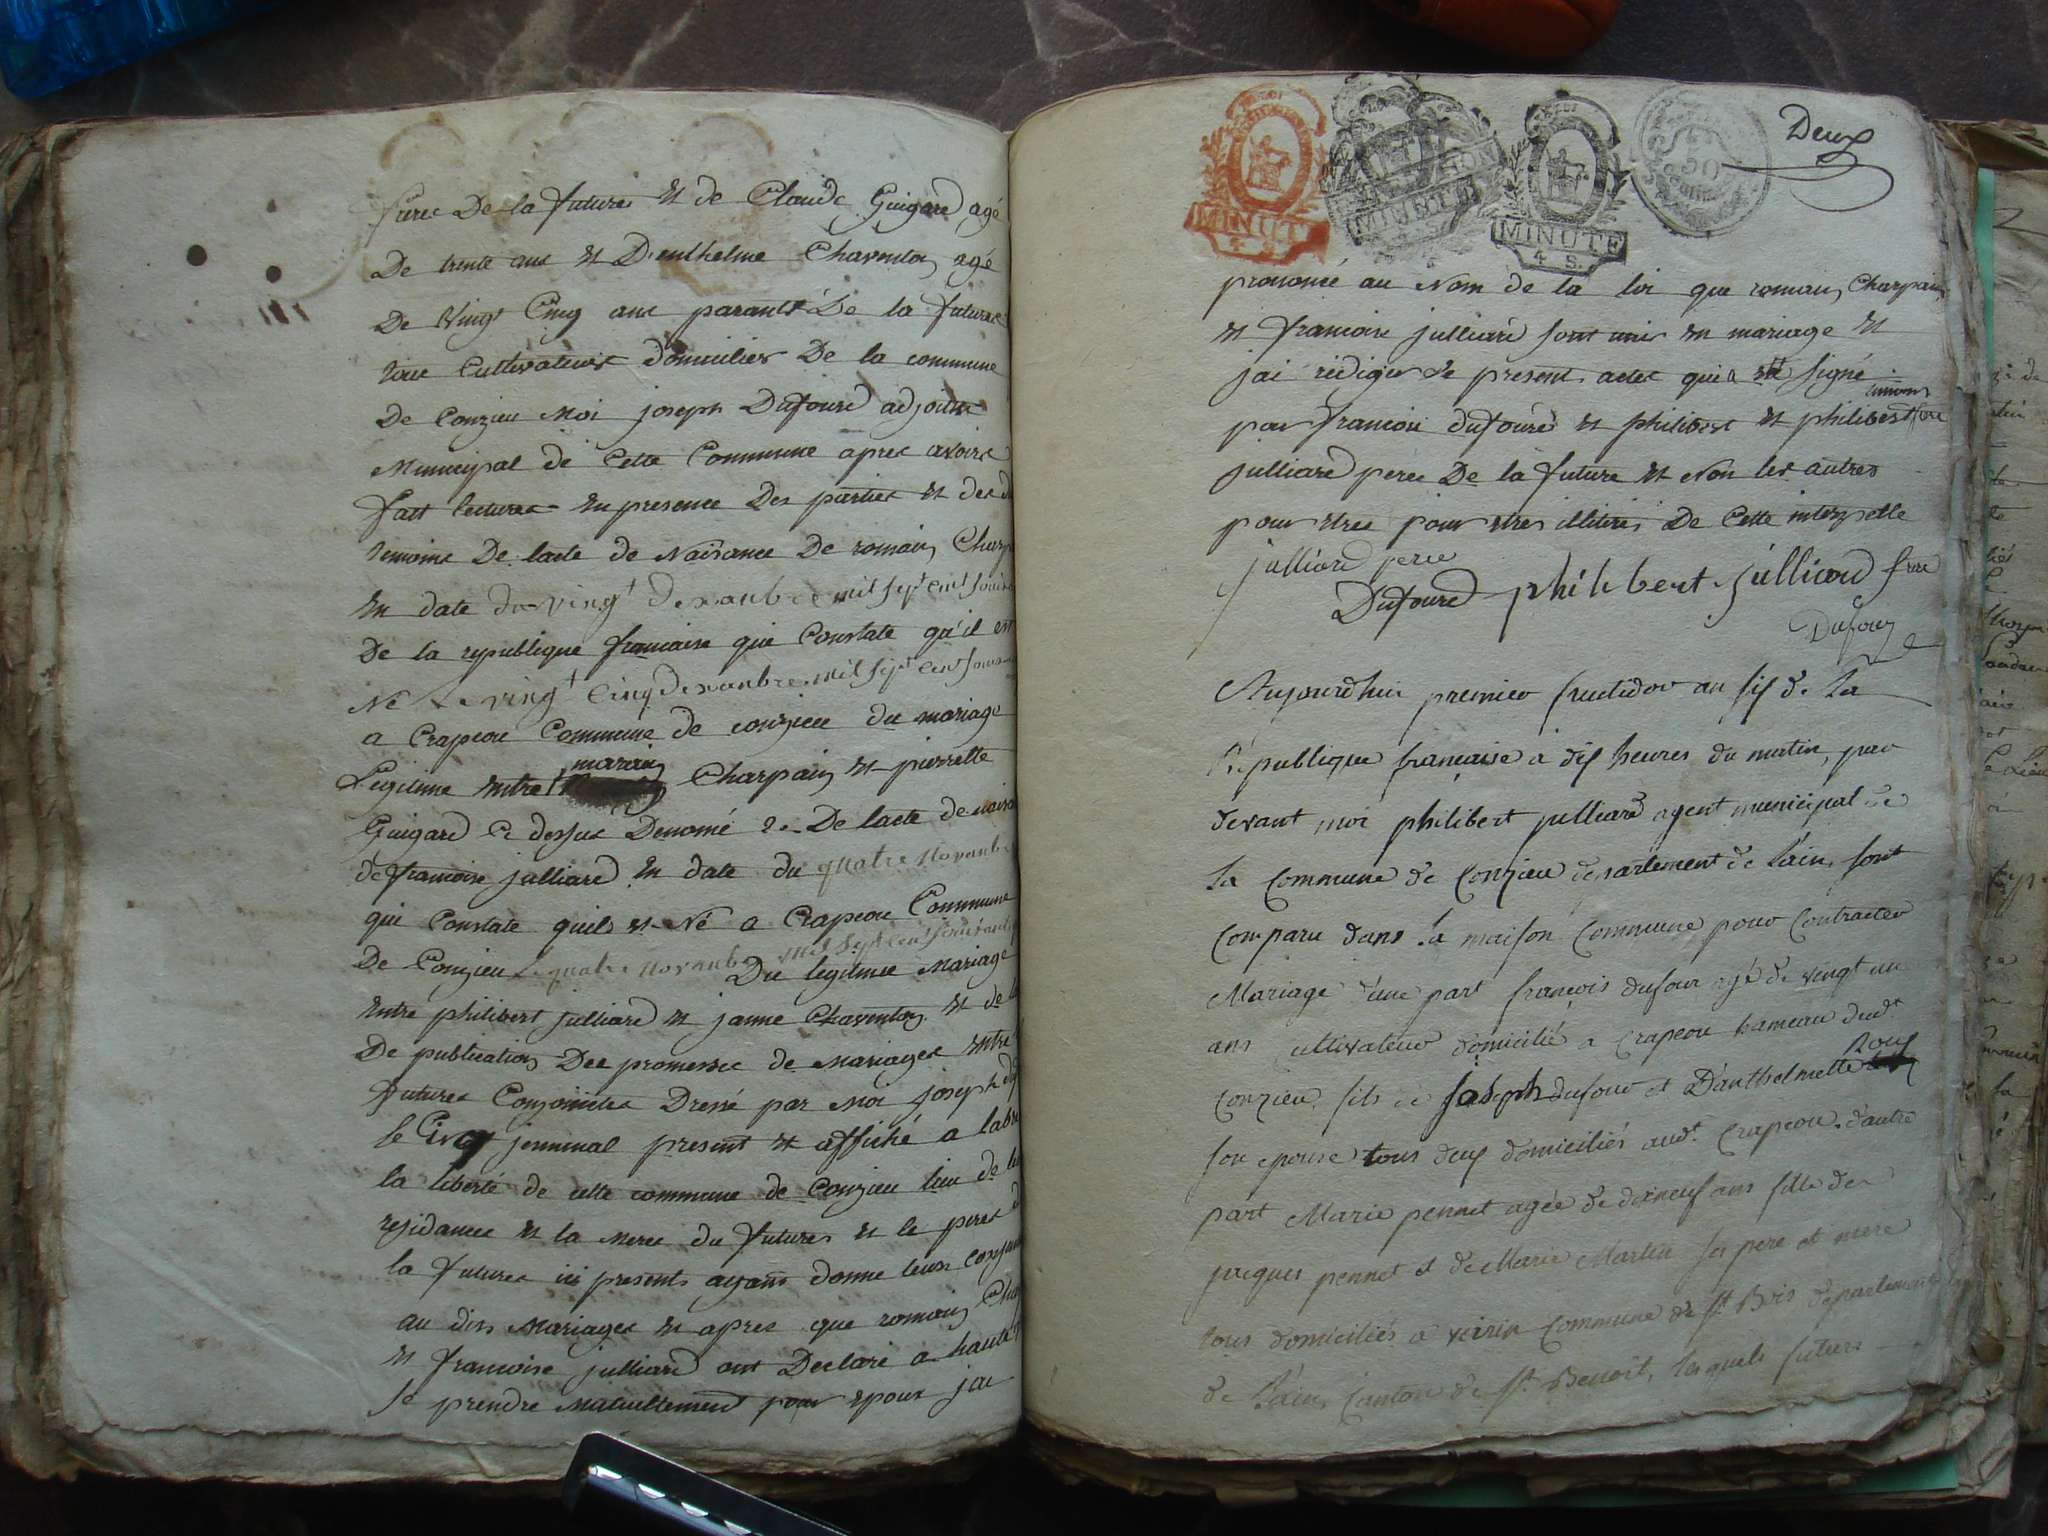 frere De la future et de Claude Guigard agé
De trente ans et Denthelme Charveton agé
De Vingt Cinq ans parants De la future
tous Cultivateurs domiciliés De la commune
De Conzieu Moi joseph Dufourd adjoint
Municipal de Cette Commune apres avoire
fait lecture en presence Des parties et des
temoins De lacte de Naisance De romain Charp
En date du vingt
De la republique francaise qui Constate qu'il est
Né Le vingt Cinq
a Crapeou Commune de conzieu du mariage
Legitime entre marain Charpain et pierrette
Guigard Ci dessus Denomé 2e De lacte de nais
de francoise julliard En date du quatre Novanbre
qui Constate quils et Né a Crapeou Commune
De Conzieu Le quatre Novanbre mil sept cent
Du legitime Mariage
entre philibert julliard et janne Charveton et de la
De publication Des promesses de Mariages entre
futures Conjointes Dressé par Moi joseph
le Cinq jerminal present et affiché a
la liberté de cette commune de Conzieu lieu de
residance et la Mere du future et le pere
la future ici presents ayans donne leurs
au dits Mariages et apres que romain
et francoise julliard ont Declaré a haute
se prendre Mutuellement pour epoux jai
MINUTE
4 S.
MINUTE
MINUTE
4 S.
50
Deux
prononcé au Nom de la loi que romain Charpain
et francoise julliard sont unis en mariage et
jai redigé le present actes qui a été signé
par francois dufourd et philibert et philibert
julliard pere De la future et Non les autres
pour etres illiteres De Cette interpelle
julliard pere
Dufourd philibert julliard frere
Dufour
Aujourdhui premier fructidor an six de la
République francaise à dix heures du matin, par
devant moi philibert julliard agent municipal de
la Commune de Conzieu departement de l'ain, sont
Comparu dans la maison Commune pour Contracter
Mariage d'une part francois dufour agé de vingt un
ans Cultivateur domicilié a Crapeou hameau dud.t
Conzieu fils de joseph dufour et D'anthelmette Roux
son epouse tous deux domiciliés aud.t Crapeou. d'autre
part Marie pennet agée de dixneuf ans fille de
jacques pennet et de Marie Martin ses pere et mere
tous domiciliés a veirin Commune de St. Bois departement
de l'ain, Canton de St. Benoit, lesquels futurs